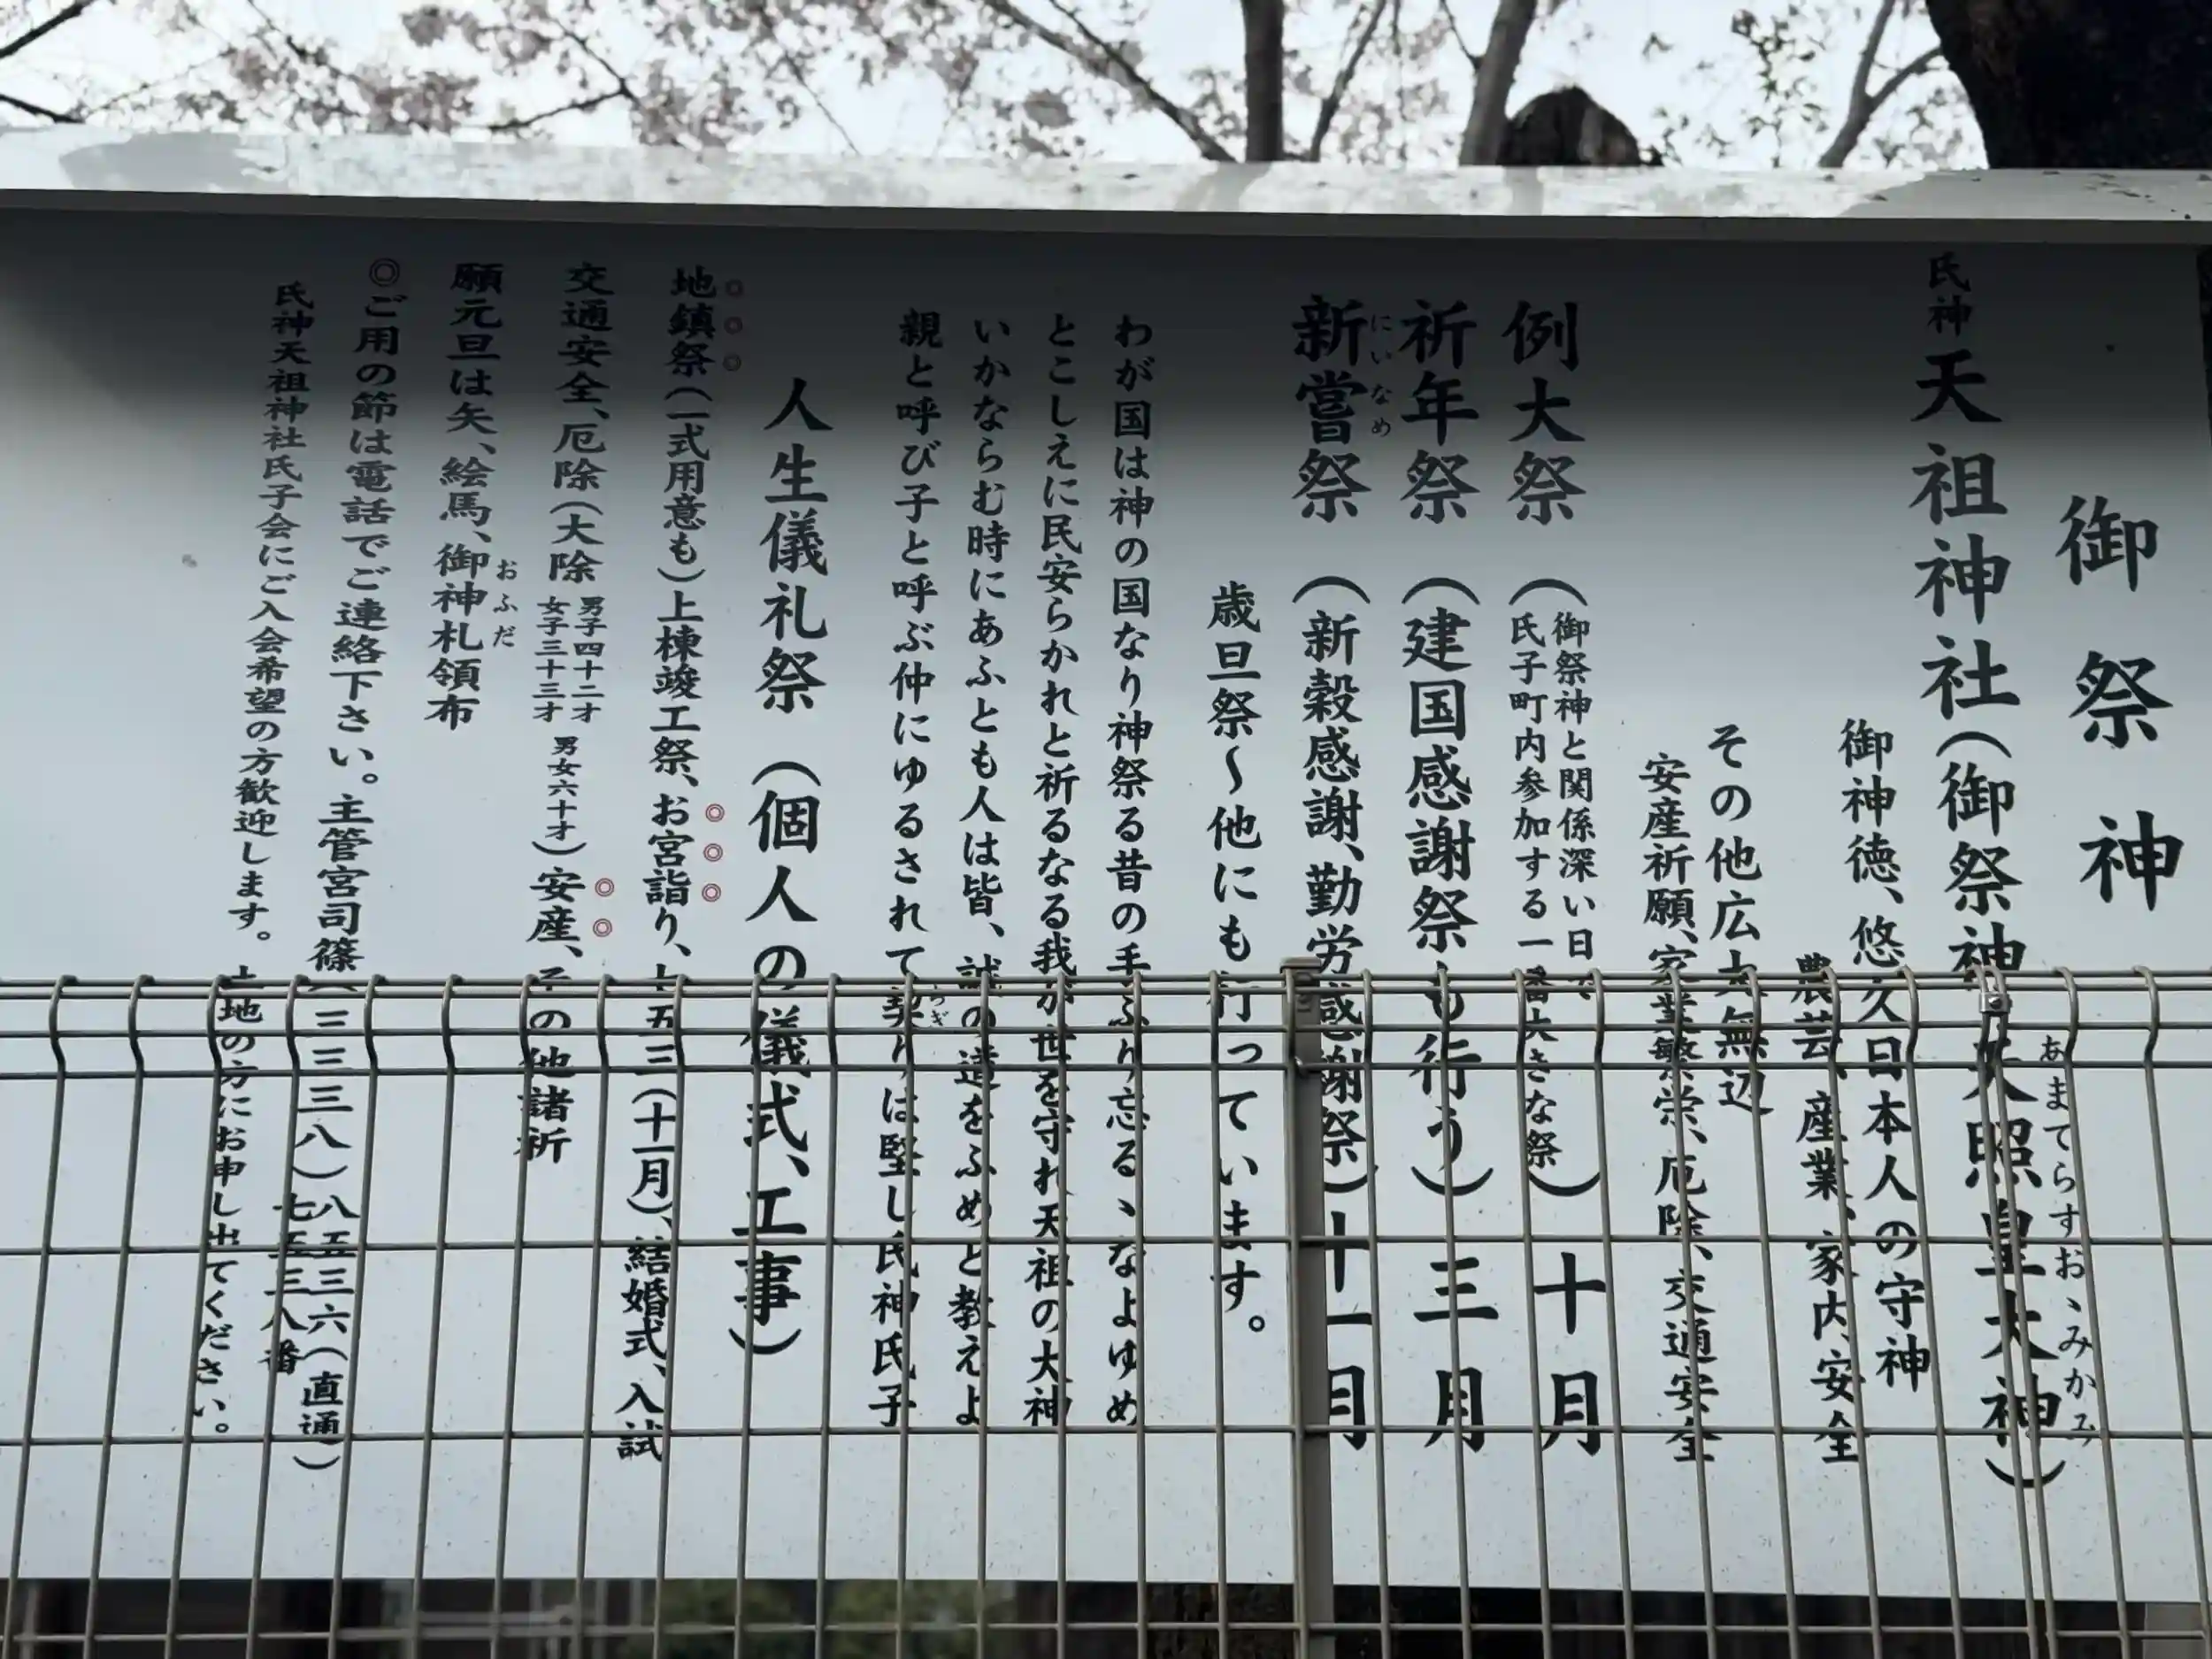 御祭神
氏神 天祖神社(御祭神 天照皇大神)
あまてらすおゝみかみ
御神徳、悠久日本人の守神
農芸、産業、家内安全
その他広大無辺
安産祈願、家業繁栄、厄除、交通安全
例大祭(御祭神と関係深い日で氏子町内参加する一番大きな祭)十月
祈年祭(建国感謝祭も行う)三月
新嘗祭(新穀感謝、勤労感謝祭)十一月
にいなめ
歳旦祭〜他にも行っています。
わが国は神の国なり神祭る昔の手ふり忘るゝなよゆめ
とこしえに民安らかれと祈るなる我が世を守れ天祖の大神
いかならむ時にあふとも人は皆、誠の道をふめと教えよ
親と呼び子と呼ぶ仲にゆるされて契りは堅し氏神氏子
人生儀礼祭(個人の儀式、工事)
地鎮祭(一式用意も)上棟竣工祭、お宮詣り、七五三(十一月)、結婚式、入試
交通安全、厄除(大除 男子四十二才 女子三十三才 男女六十才)安産、その他諸祈
願元旦は矢、絵馬、御神札領布
おふだ
◎ご用の節は電話でご連絡下さい。主管宮司篠(三三三八)八五三六(直通)
七五三八番
氏神天祖神社氏子会にご入会希望の方歓迎します。土地の方にお申し出てください。